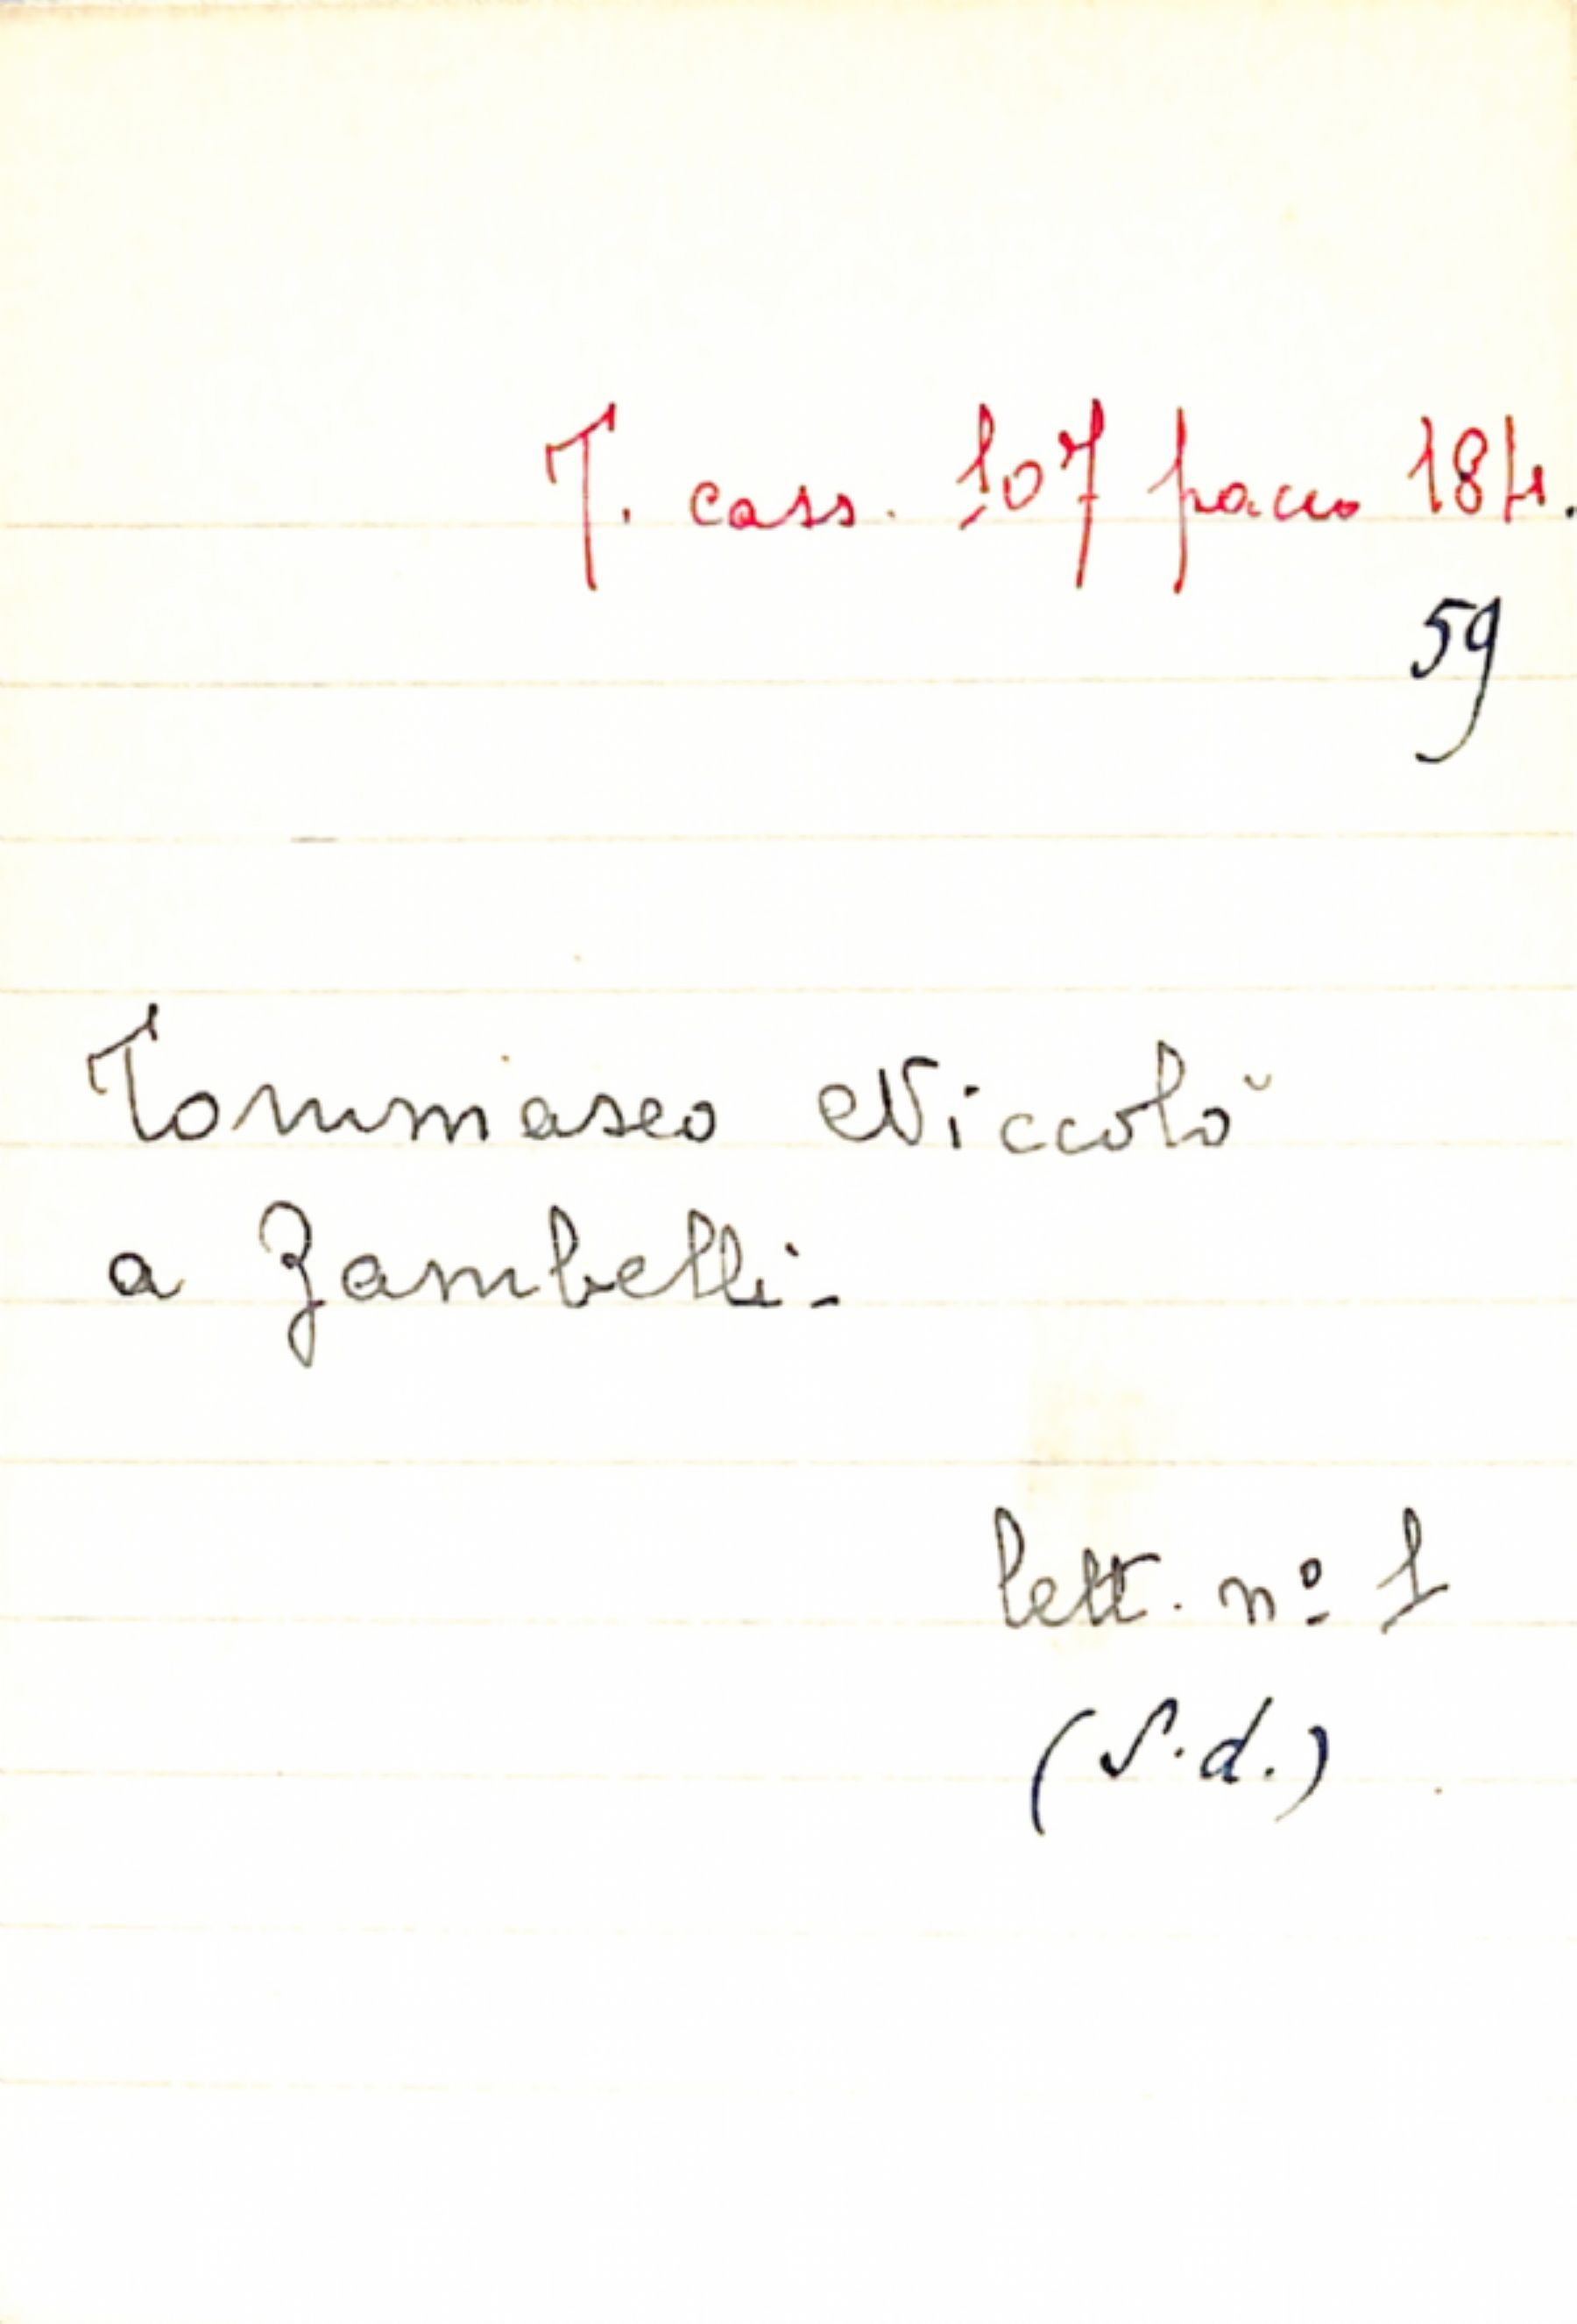 T. cass. 107 pacco 184.
59
Tommaseo Niccolò
a Zambelli-
lett. nº 1
(S.d.)